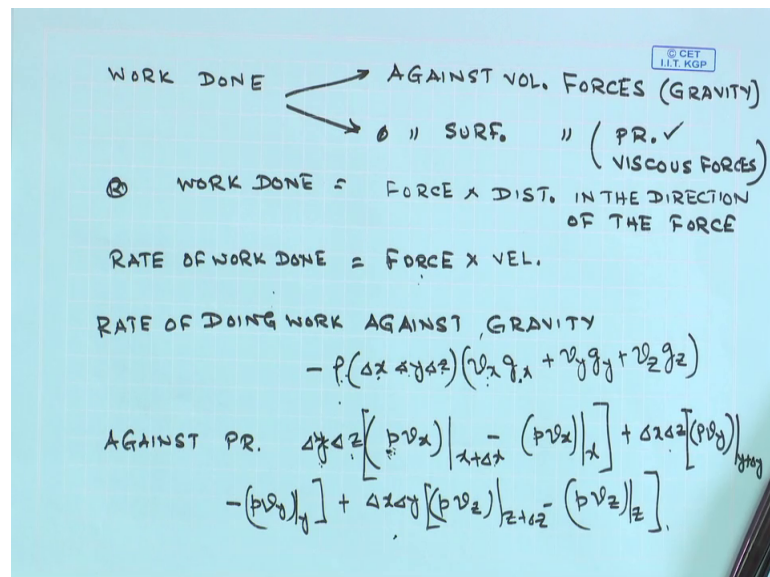 © CET
I.I.T. KGP
WORK DONE → AGAINST VOL. FORCES (GRAVITY)
→ " SURF. " (PR. ✓
VISCOUS FORCES)
WORK DONE = FORCE × DIST. IN THE DIRECTION
OF THE FORCE
RATE OF WORK DONE = FORCE × VEL.
RATE OF DOING WORK AGAINST GRAVITY
- ρ(Δx Δy Δz)(v_x g_x + v_y g_y + v_z g_z)
AGAINST PR. Δy Δz[(pv_x)|_{x+Δx} - (pv_x)|_x] + Δx Δz[(pv_y)|_{y+Δy}
- (pv_y)|_y] + Δx Δy[(pv_z)|_{z+Δz} - (pv_z)|_z].